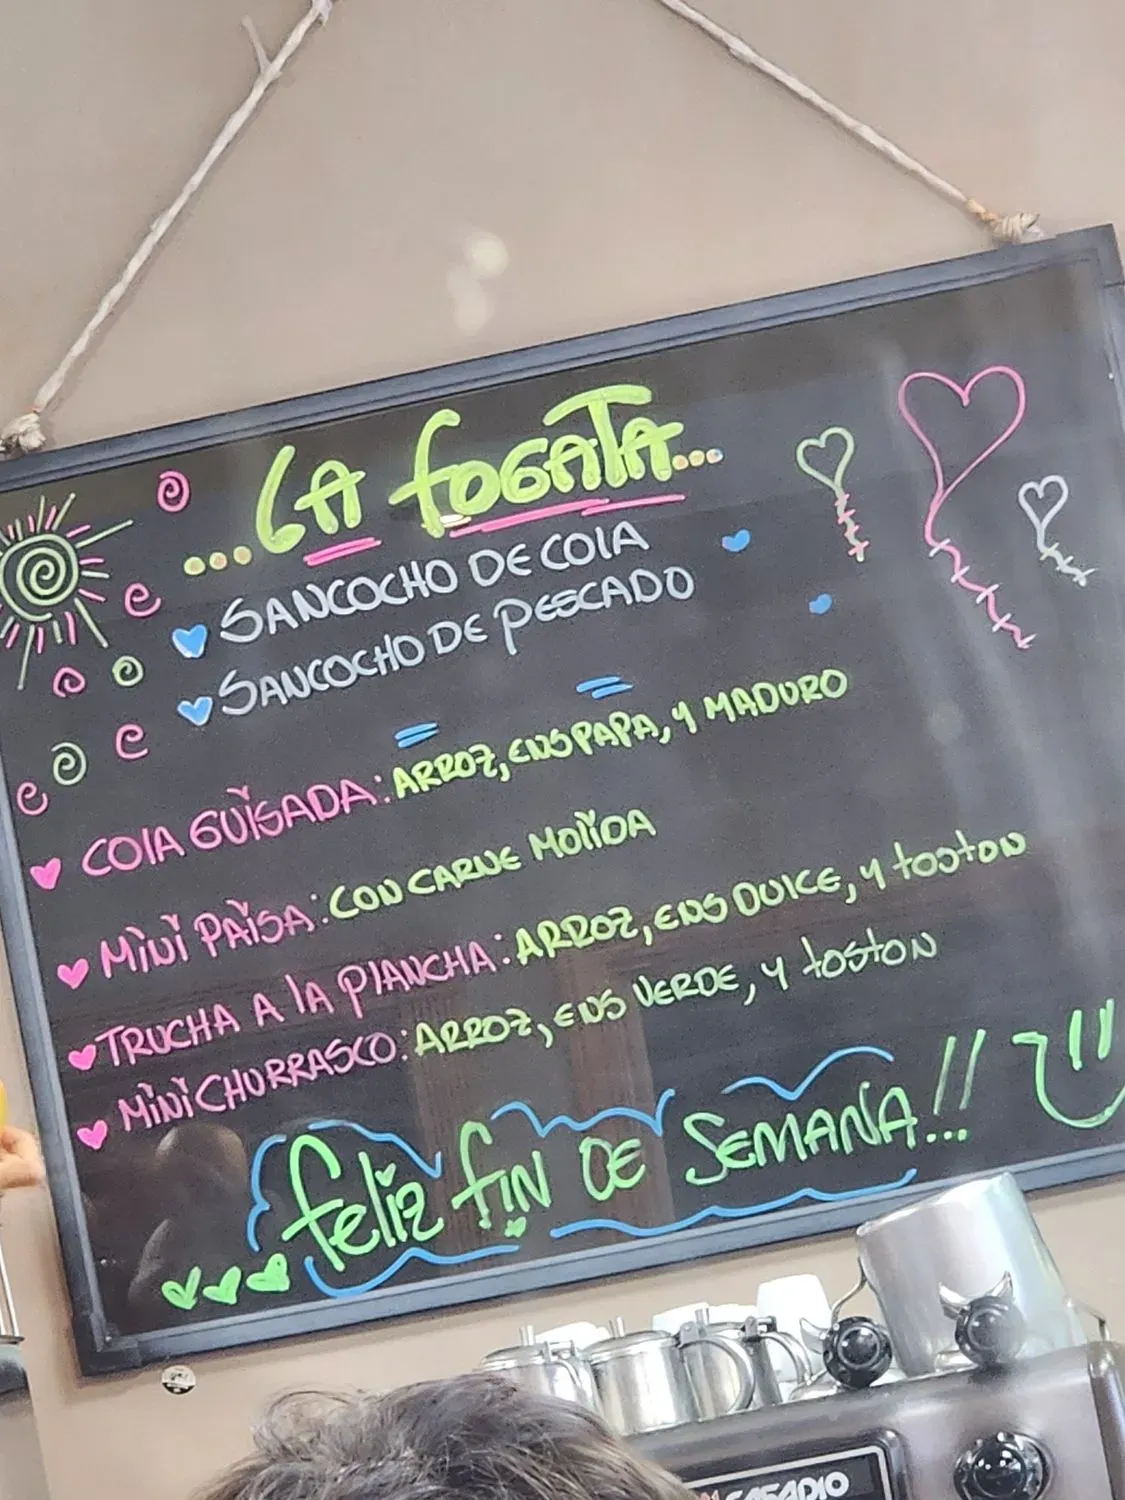 ...LA FOGATA...
SANCOCHO DE COLA
SANCOCHO DE PESCADO
COLA GUISADA: ARROZ, ENS PAPA, Y MADURO
MINI PAISA: CON CARNE MOLIDA
TRUCHA A LA PLANCHA: ARROZ, ENS DULCE, Y TOSTON
MINI CHURRASCO: ARROZ, ENS VERDE, Y TOSTON
FELIZ FIN DE SEMANA...!!
CASADIO